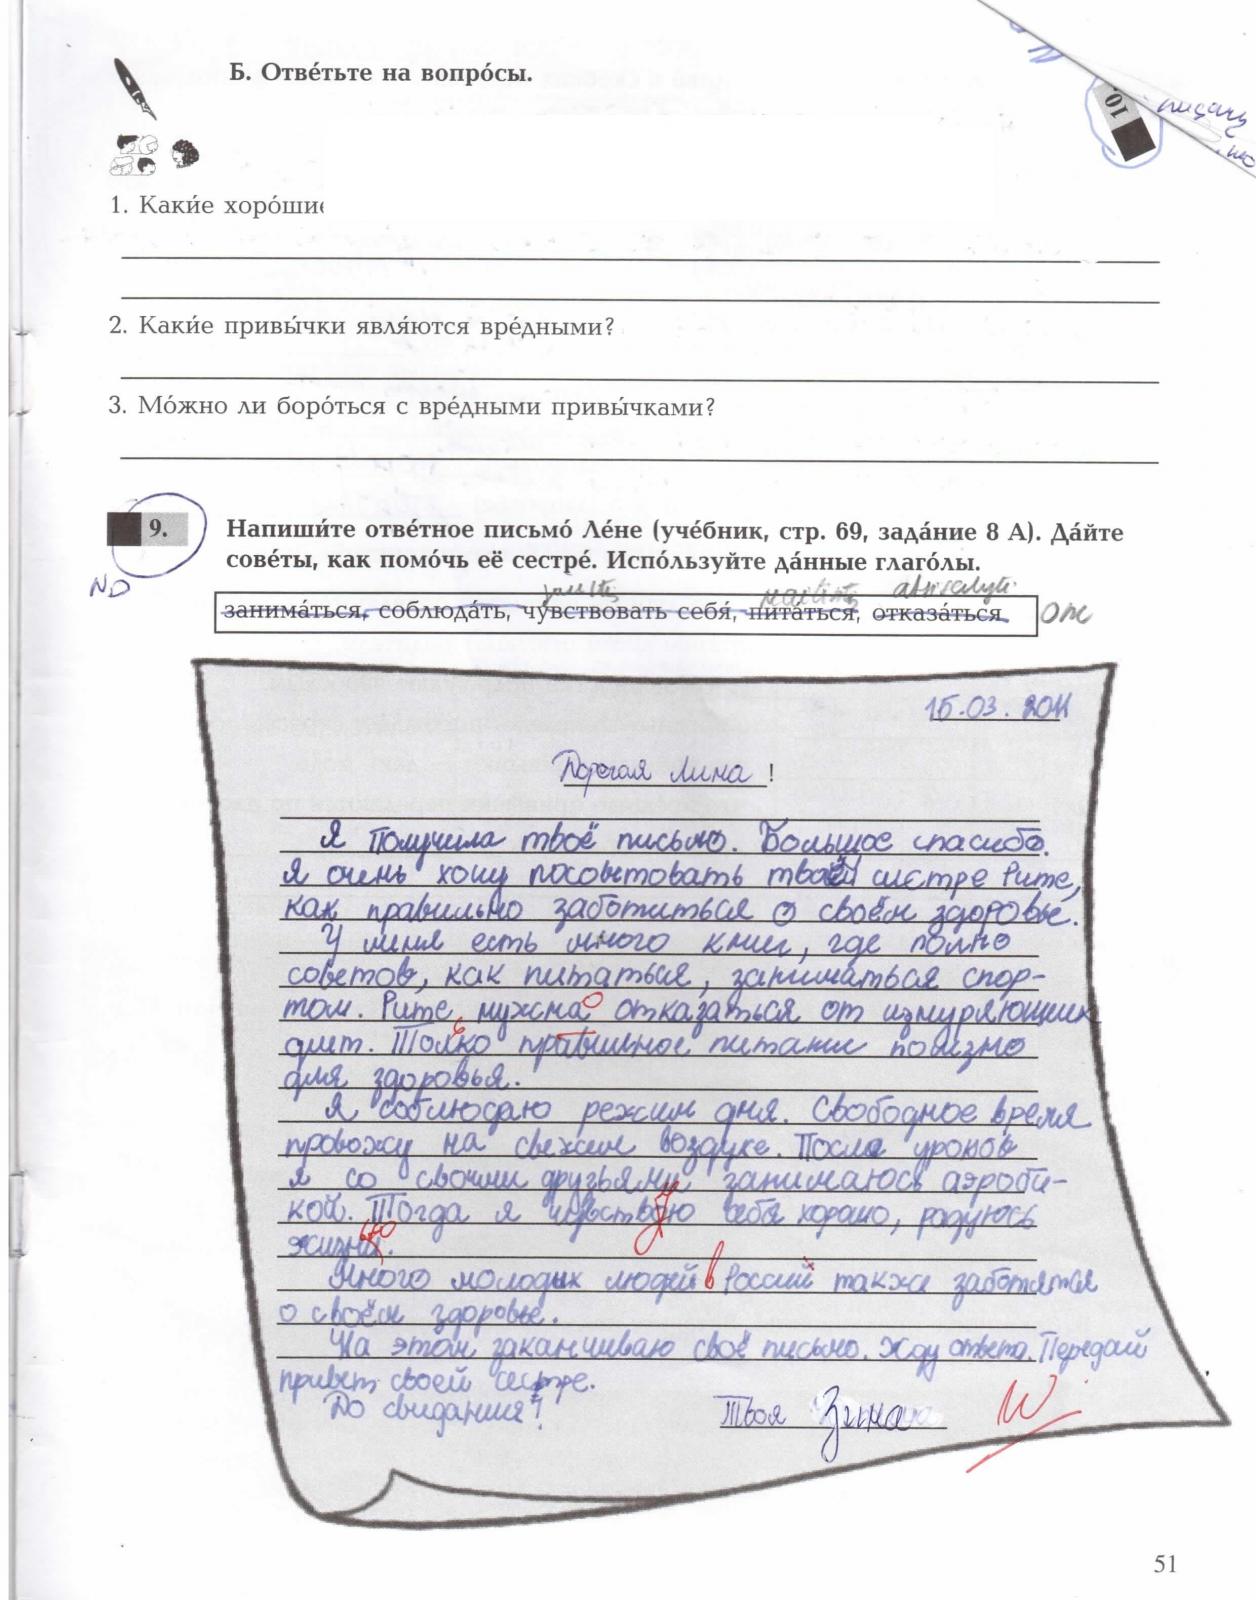 Б. Отве́тьте на вопро́сы.
10.
1. Каки́е хоро́шие
2. Каки́е привы́чки явля́ются вре́дными?
3. Мо́жно ли боро́ться с вре́дными привы́чками?
9.
ND
Напиши́те отве́тное письмо́ Ле́не (уче́бник, стр. 69, зада́ние 8 А). Да́йте
сове́ты, как помо́чь её сестре́. Испо́льзуйте да́нные глаго́лы.
занима́ться, соблюда́ть, чу́вствовать себя́, пита́ться, отказа́ться
15.03.2011
Дорогая Лина!
Я получила твоё письмо. Большое спасибо.
Я очень хочу посоветовать твоей сестре Рите,
как правильно заботиться о своём здоровье.
У меня есть много книг, где полно
советов, как питаться, заниматься спор-
том. Рите нужна о отказаться от изнуряющих
диет. Толко ь правильное питание полезно
для здоровья.
Я соблюдаю режим дня. Свободное время
провожу на свежем воздухе. После уроков
я со своими друзьями занимаюсь аэроби-
кой. Тогда я чувствую себя хорошо, радуюсь
жизни.
Много молодых людей в Россий также заботятся
о своём здоровье.
На этом заканчиваю своё письмо. Жду ответа. Передай
привет своей сестре.
До свидания!
Твоя Зина
51